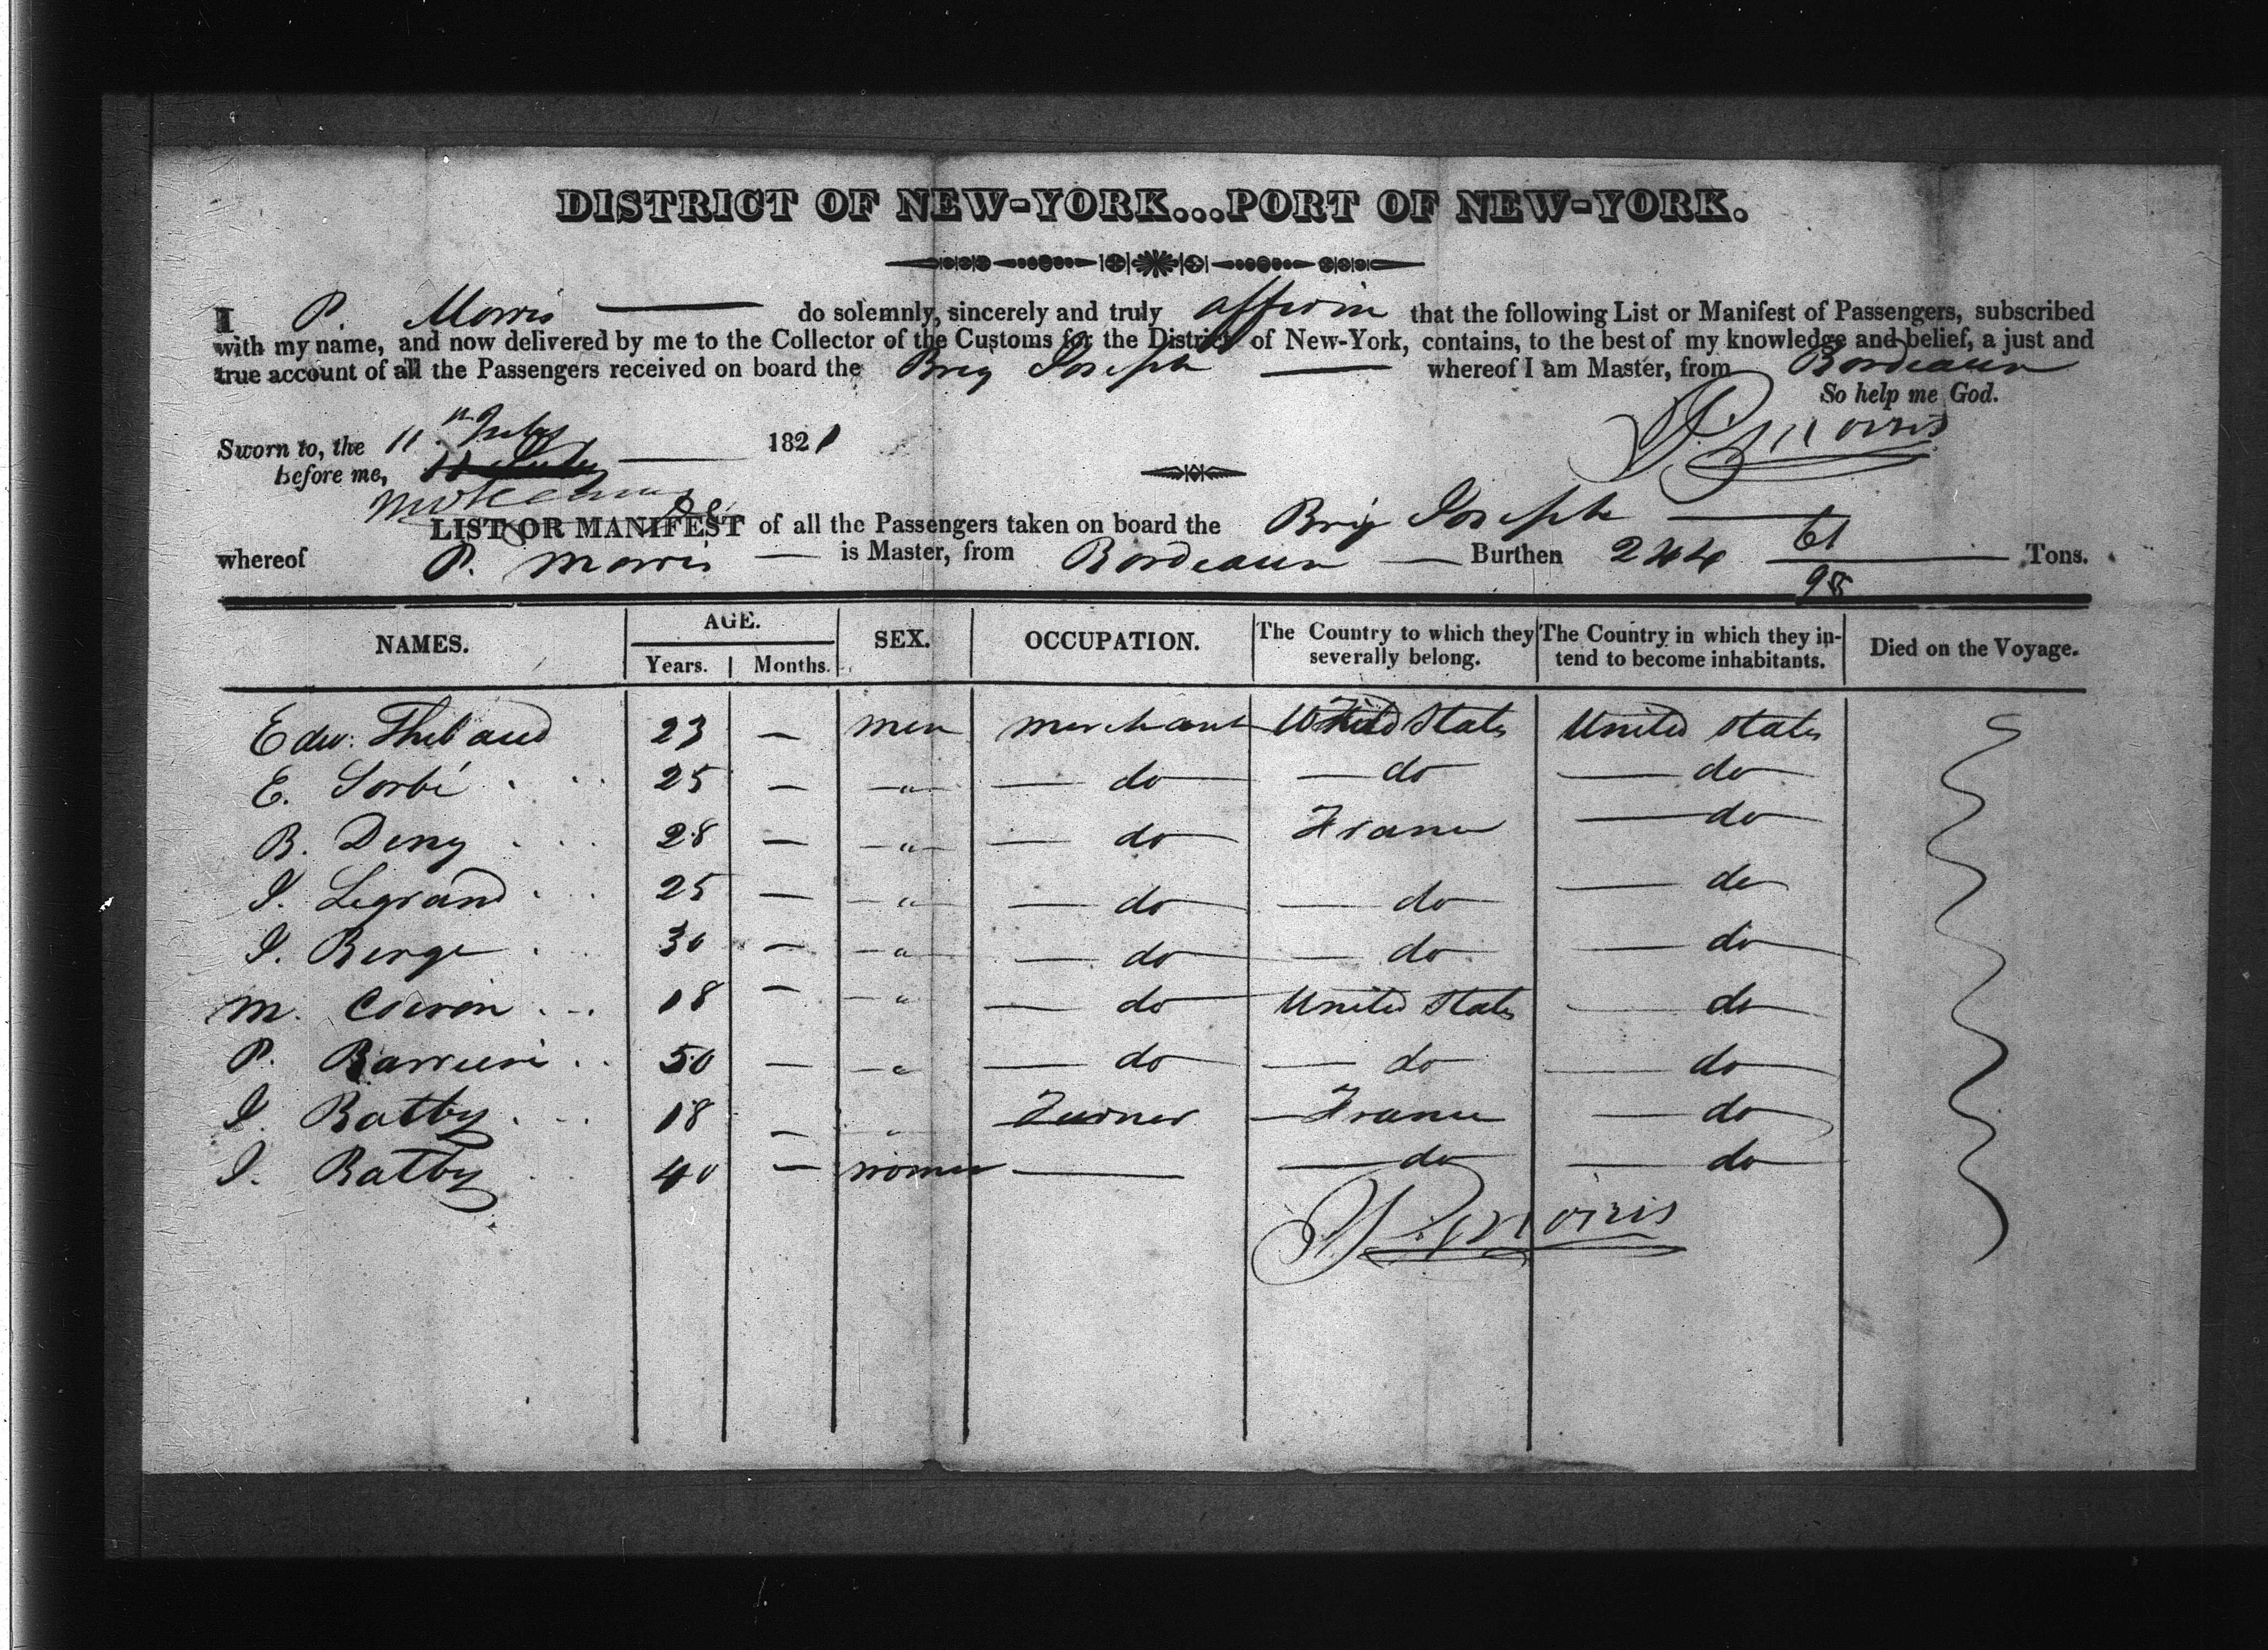 DISTRICT OF NEW-YORK...PORT OF NEW-YORK.
I P. Morris do solemnly, sincerely and truly affirm that the following List or Manifest of Passengers, subscribed
with my name, and now delivered by me to the Collector of the Customs for the District of New-York, contains, to the best of my knowledge and belief, a just and
true account of all the Passengers received on board the Brig Joseph whereof I am Master, from Bordeaux
So help me God.
Sworn to, the 11 July 1821
before me, 11 July
P. Morris
LIST OR MANIFEST of all the Passengers taken on board the Brig Joseph
whereof P. Morris is Master, from Bordeaux Burthen 244 61/95 Tons.
NAMES. AGE. Years. Months. SEX. OCCUPATION. The Country to which they severally belong. The Country in which they intend to become inhabitants. Died on the Voyage.
Edw: Thebaud 23 — men merchant United States United States
E. Sorbé 25 — " do do do
B. Deny 28 — " do France do
J. Legrand 25 — " do do do
J. Berge 30 — " do do do
M. 18 — " do United States do
P. 50 — " do do do
J. Batby 18 — " Turner France do
J. Batby 40 — women — do do
P. Morris